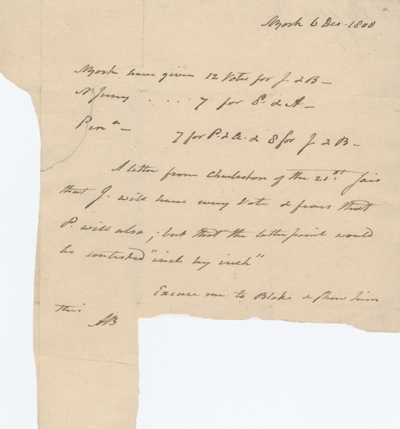 NYork 6 Dec. 1800
NYork have given 12 Votes for J. & B —
N Jersey . . . 7 for P. & A —
Pena — 7 for P. & A. & 8 for J. & B —
A letter from Charleston of the 21st Says
that J. will have every Vote & fears that
P. will also; but that the latter point would
be contested "inch by inch"
Excuse me to & show him
this AB